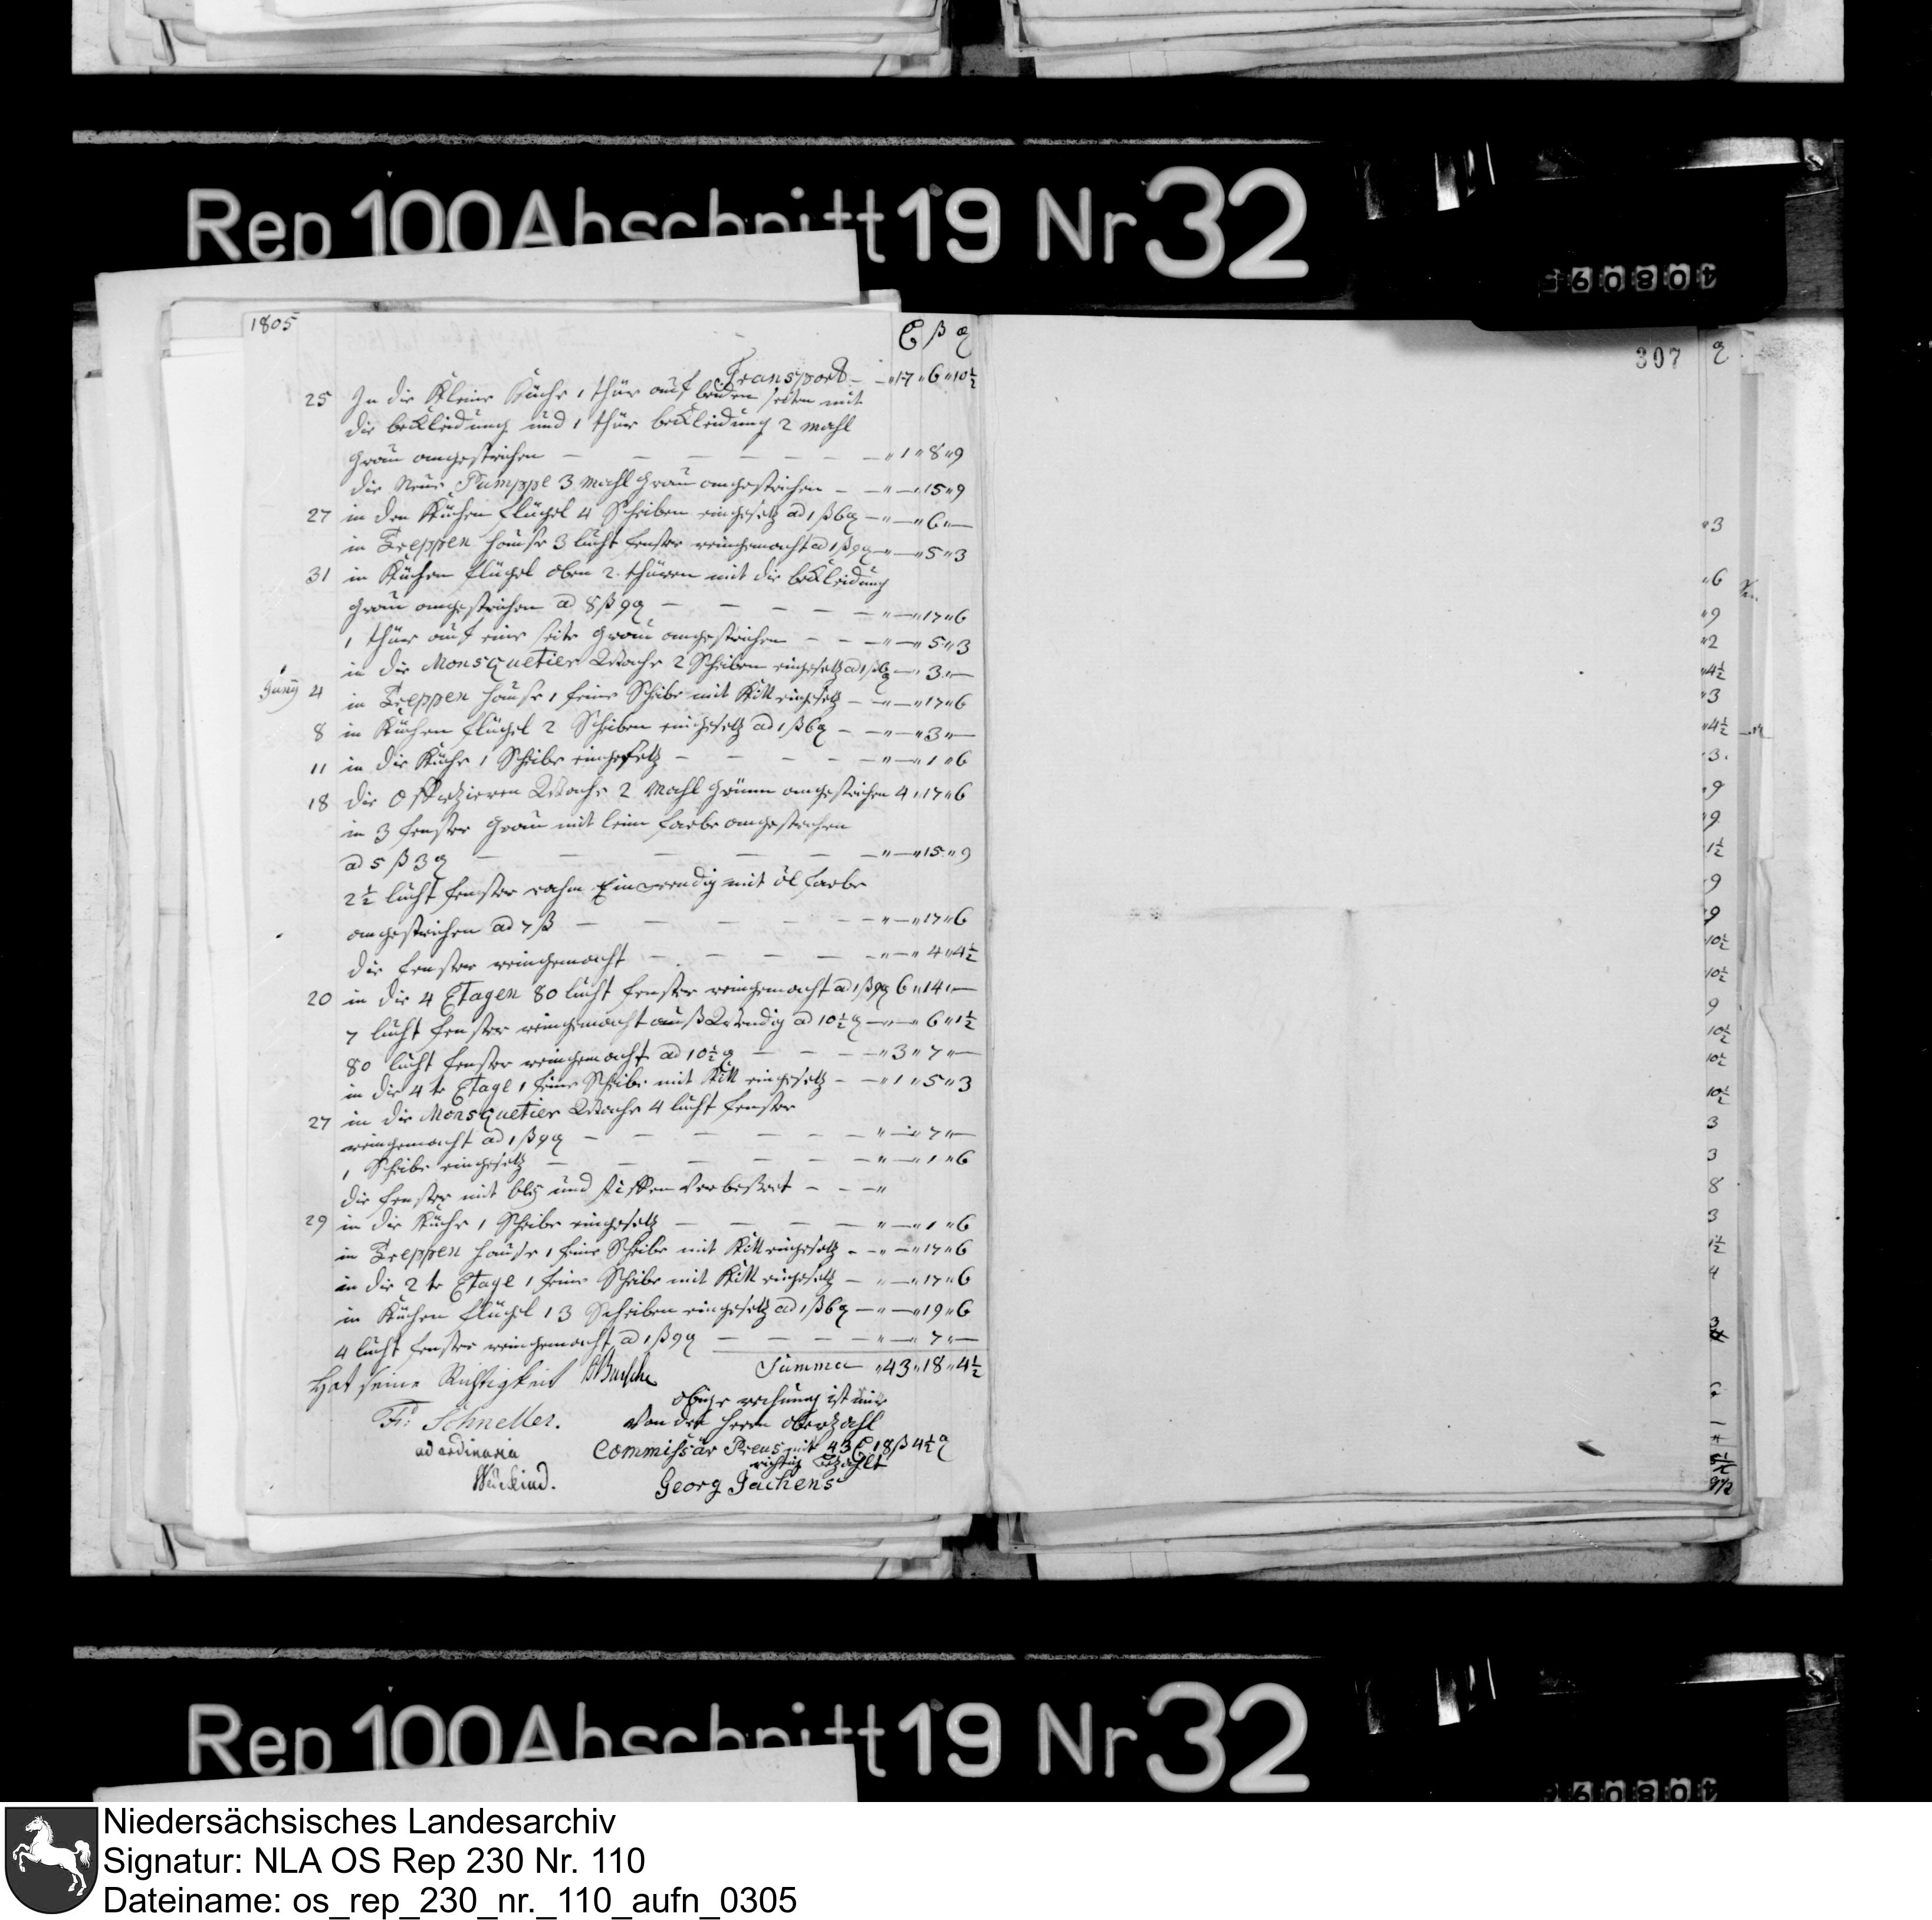 Rep 100 Abschnitt 19 Nr 32
40809
1805
307
Transport — — " 17 " 6 " 10½
25 In die Kleine Küche 1 thür auf beiden seiten mit
die beKleidung und 1 thür beKleidung 2 mahl
grau angestrichen — — — — — " 1 " 8 " 9
die Neue Pumppe 3 mahl grau angestrichen — — " — " 15 " 9
27 in den Küchen flügel 4 Scheiben eingesetz ad 1 ß 6 ₰ — " — " 6 " —
in Treppen hause 3 lucht fenster reingemacht ad 1 ß 9 ₰ — " — " 5 " 3
31 in Küchen flügel oben 2 thüren mit die beKleidung
grau angestrichen ad 8 ß 9 ₰ — — — — — " — " 17 " 6
1 thür auf eine seite grau angestrichen — — — " — " 5 " 3
in die Monsquetier Wache 2 Scheiben eingesetz ad 1 ß 6 ₰ — " 3 " —
Juny 4 in Treppen hause 1 feine Scheibe mit Kitt eingesetz — — " — " 17 " 6
8 in Küchen flügel 2 Scheiben eingesetz ad 1 ß 6 ₰ — — " — " 3 " —
11 in die Küche 1 Scheibe eingesetz — — — — — " — " 1 " 6
18 die Offizieren Wache 2 Mahl grünn angestrichen 4 " 17 " 6
in 3 fenster grau mit leim farbe angestrichen
ad 5 ß 3 ₰ — — — — — — " — " 15 " 9
2½ lucht fenster rahm Einwendig mit öl farbe
angestrichen ad 7 ß — — — — — " — " 17 " 6
die fenster reingemacht — — — — — " — " 4 " 4½
20 in die 4 Etagen 80 lucht fenster reingemacht ad 1 ß 9 ₰ 6 " 14 " —
7 lucht fenster reingemacht außWendig ad 10½ ₰ — " — " 6 " 1½
80 lucht fenster reingemacht ad 10½ ₰ — — — " 3 " 7 " —
in die 4 te Etage 1 feine Scheibe mit Kitt eingesetz — — " 1 " 5 " 3
27 in die Monsquetier Wache 4 lucht fenster
reingemacht ad 1 ß 9 ₰ — — — — — " — " 7 " —
1 Scheibe eingesetz — — — — — — " — " 1 " 6
die fenster mit bley und Verbeßert — — — "
29 in die Küche 1 Scheibe eingesetz — — — — " — " 1 " 6
in Treppen hause 1 feine Scheibe mit Kitt eingesetz — — " — " 17 " 6
in die 2 te Etage 1 feine Scheibe mit Kitt eingesetz — " — " 17 " 6
in Küchen flügel 13 Scheiben eingesetz ad 1 ß 6 ₰ — " — " 19 " 6
4 lucht fenster reingemacht ad 1 ß 9 ₰ — — — — " — " 7 " —
Summa " 43 " 18 " 4½
Hat seine Richtigkeit
obige rechnung ist mir
Fr: Schneller. Von den herrn oberzahl
ad ordinaria Commissär Preus mit 43 18 ß 4½ ₰
richtig bezahlt
Georg Jachens
Rep 100 Abschnitt 19 Nr 32
40809
Niedersächsisches Landesarchiv
Signatur: NLA OS Rep 230 Nr. 110
Dateiname: os_rep_230_nr._110_aufn_0305